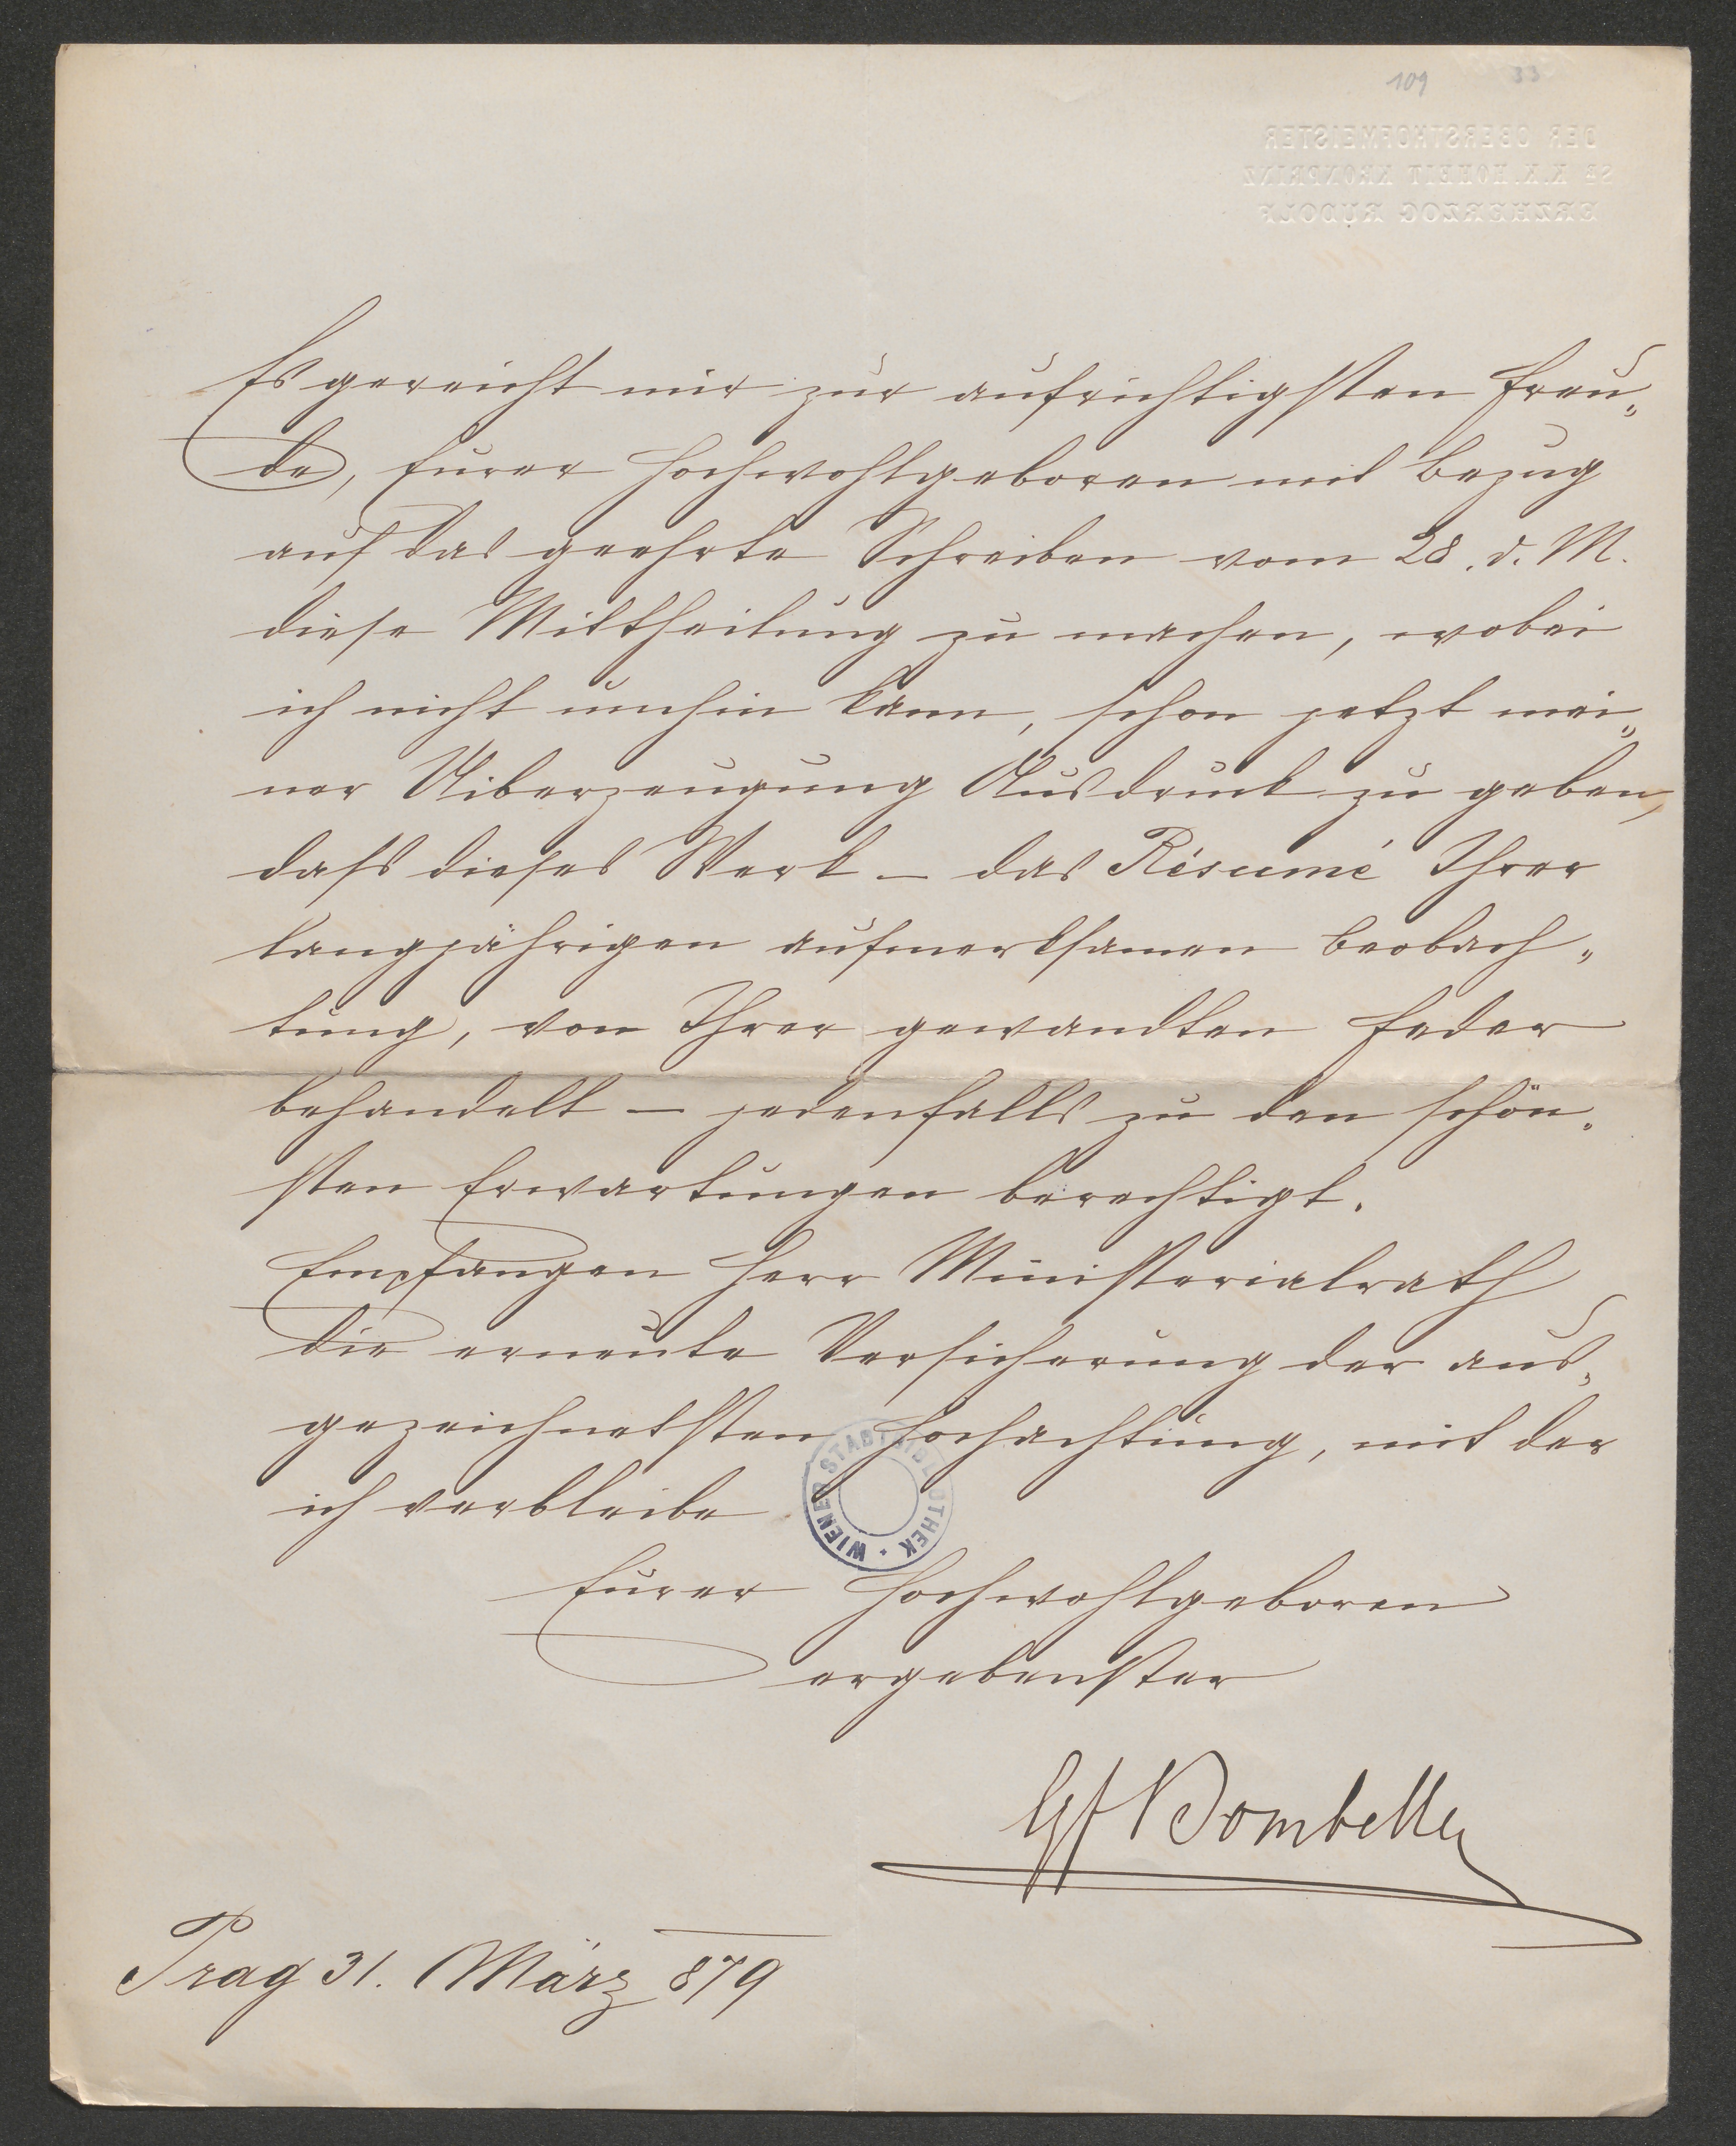 109 33
DER OBERSTHOFMEISTER
SR K.K. HOHEIT KRONPRINZ
ERZHERZOG RUDOLF
Es gereicht mir zur aufrichtigsten Freu„
de, Eurer Hochwohlgeboren mit Bezug
auf das geehrte Schreiben vom 28. d. M.
diese Mittheilung zu machen, wobei
ich nicht umhin kann, schon jetzt mei„
ner Uiberzeugung Ausdruck zu geben,
dass dieses Werk – das Résumé Ihrer
langjährigen aufmerksamen Beobach„
tung, von Ihrer gewandten Feder
behandelt – jedenfalls zu den schön„
sten Erwartungen berechtigt.
Empfangen Herr Ministerialrath
die erneute Versicherung der aus„
gezeichnetsten Hochachtung, mit der
ich verbleibe
WIENER STADTBIBLIOTHEK
Eurer Hochwohlgeboren
ergebenster
Gf Bombelles
Prag 31. März 879